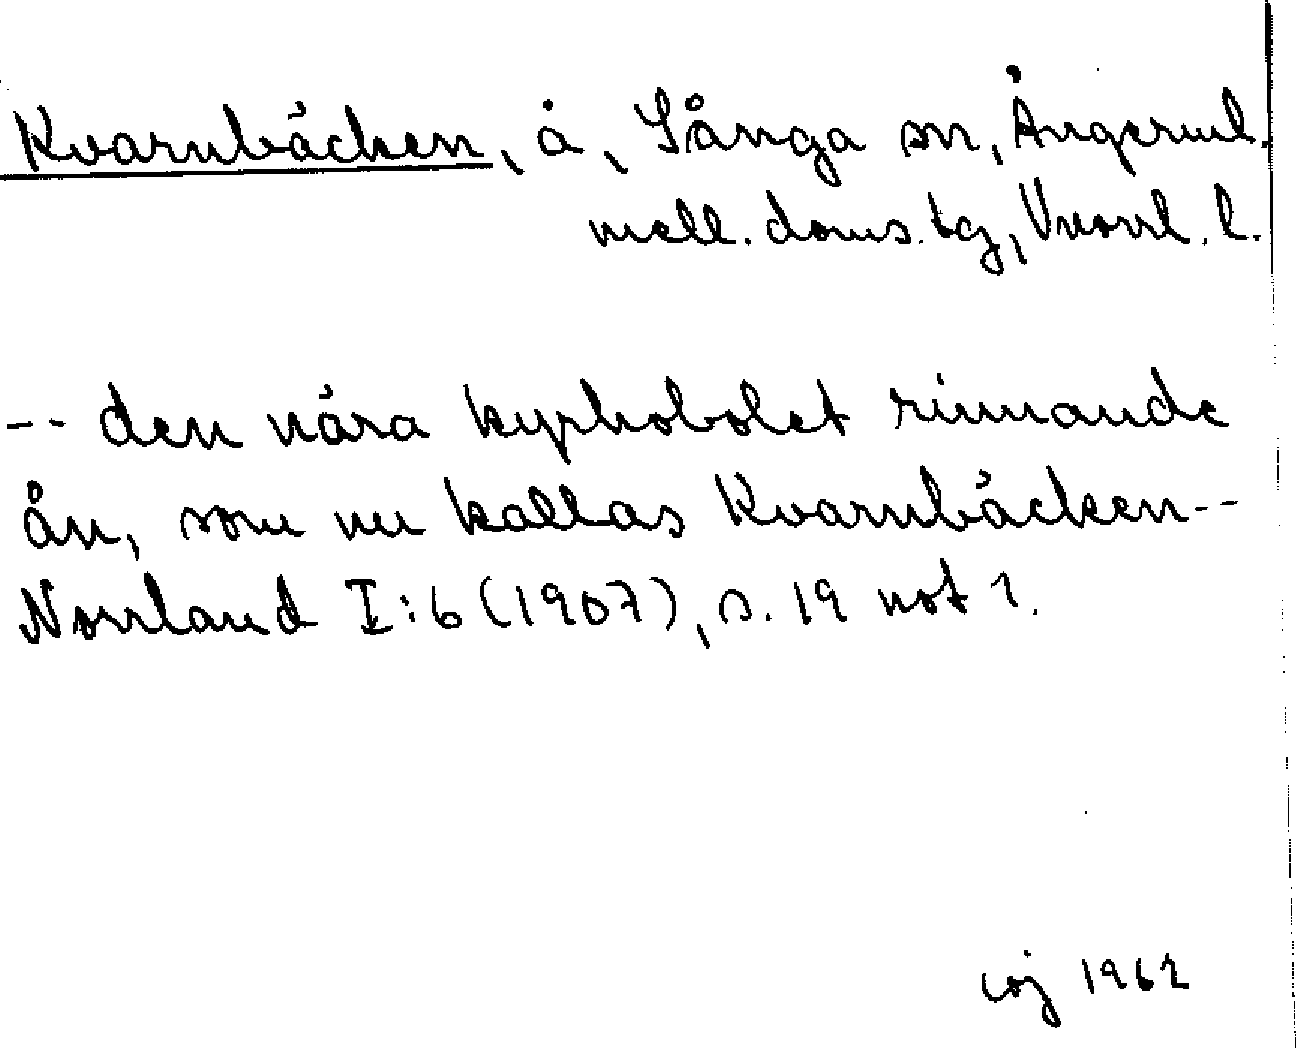 Kvarnbäcken, å, Sånga sn, Ångerml.
mell. doms. tg, Vnorrl. l.
-- den nära kyrkobolet rinnande
ån, som nu kallas Kvarnbäcken--
Norrland I:6 (1907), s. 19 not 1.
1962